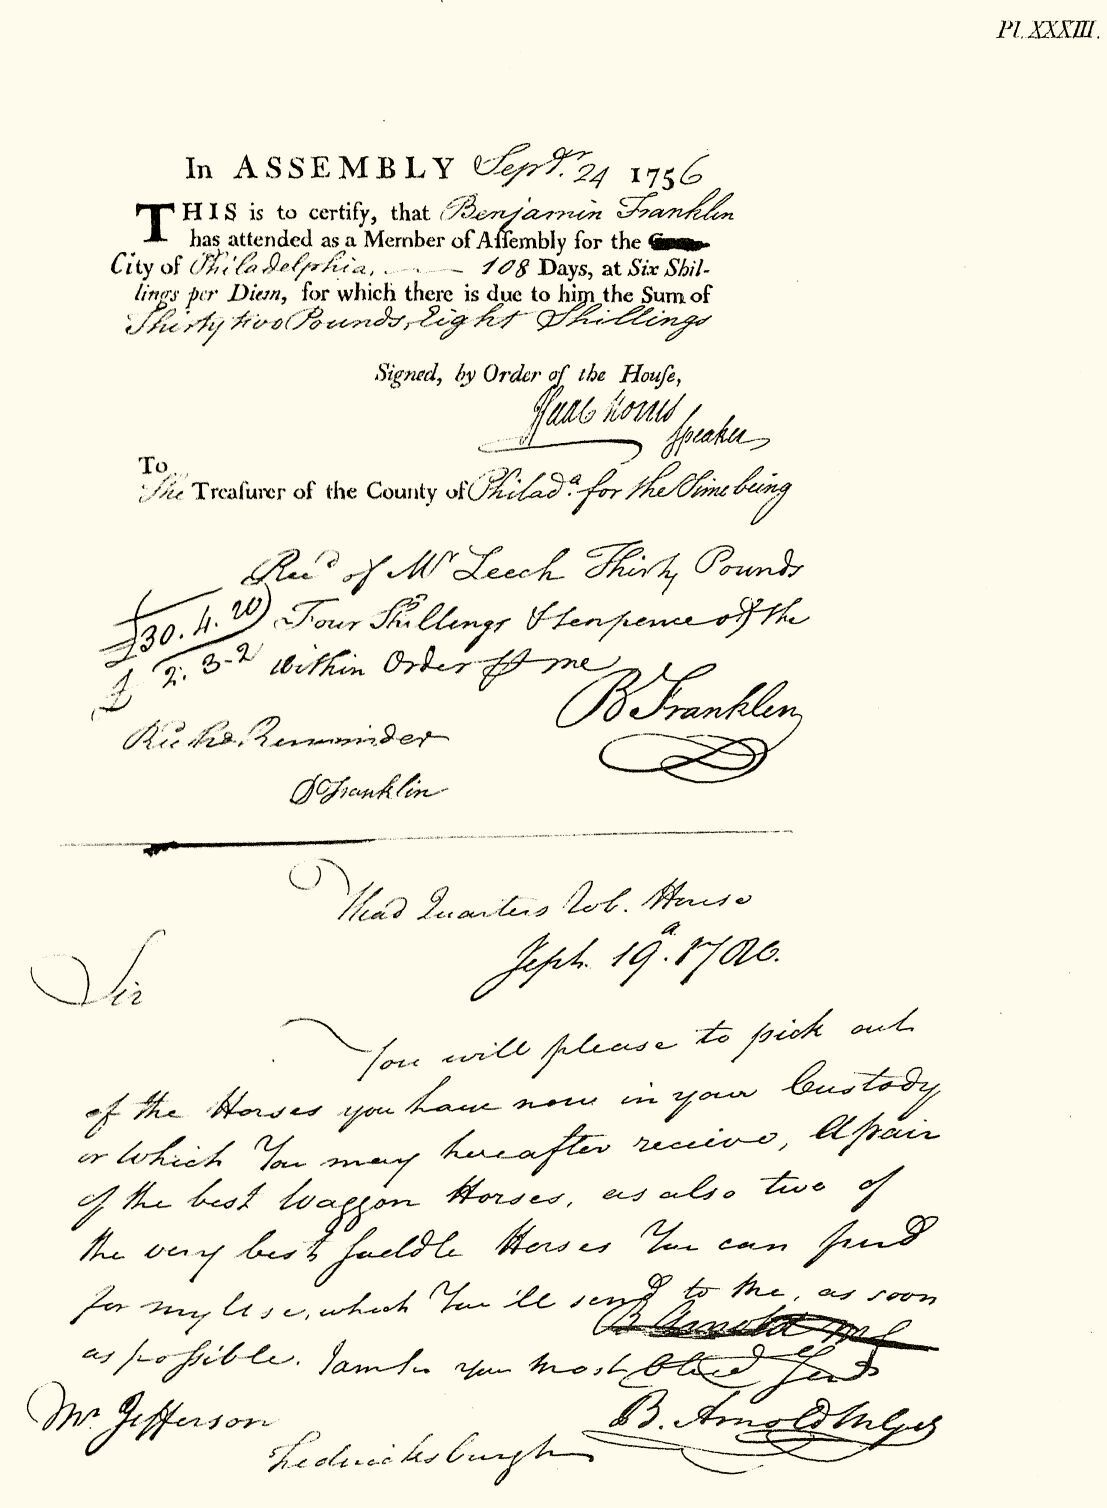 Pl. XXXIII.
In ASSEMBLY Sepr. 24 1756
THIS is to certify, that Benjamin Franklin
has attended as a Member of Aſſembly for the
City of Philadelphia, 108 Days, at Six Shil-
lings per Diem, for which there is due to him the Sum of
Thirty two Pounds, Eight Shillings
Signed, by Order of the Houſe,
Isaac Norris
Speaker
To
The Treaſurer of the County of Philada. for the Time being
Recd of Mr Leech Thirty Pounds
£30.4.10 Four Shillings & tenpence of the
£ 2.3-2 within Order ⅌ me
B Franklin
Remainder
B Franklin
Head Quarters Rob. House
Sept. 19th. 1780.
Sir
You will please to pick out
of the Horses you have now in your Custody
or which You may hereafter receive, A pair
of the best Waggon Horses, as also two of
the very best Saddle Horses You can find
for my Use, which You'll send to me, as soon
B Arnold M G
as poſsible. I am Sr your most Obed Serv
Mr. Jefferson
B. Arnold M Genl
Fredricksburgh